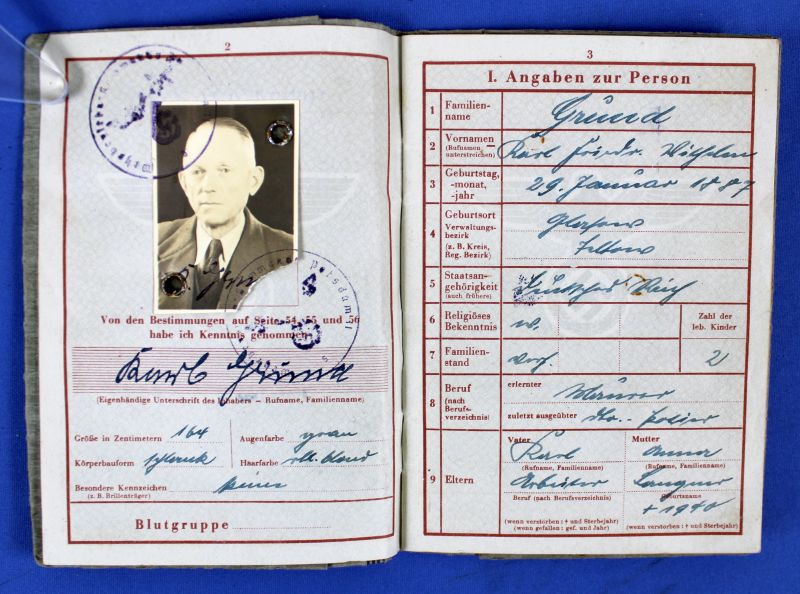 2
Von den Bestimmungen auf Seite 54, 55 und 56
habe ich Kenntnis genommen
Karl Grund
(Eigenhändige Unterschrift des Inhabers – Rufname, Familienname)
Größe in Zentimetern 164
Augenfarbe grau
Körperbauform schlank
Haarfarbe blond
Besondere Kennzeichen keine
(z. B. Brillenträger)
Blutgruppe
3
I. Angaben zur Person
1 Familien-
name
Grund
2 Vornamen
(Rufnamen
unterstreichen)
Karl Friedr. Wilhelm
3 Geburtstag,
-monat,
-jahr
29. Januar 1887
4 Geburtsort
Verwaltungs-
bezirk
(z. B. Kreis,
Reg. Bezirk)
Glasow
Teltow
5 Staatsan-
gehörigkeit
(auch frühere)
Reich
6 Religiöses
Bekenntnis
Zahl der
leb. Kinder
7 Familien-
stand
verh.
2
8 Beruf
(nach
Berufs-
verzeichnis)
erlernter
Maurer
zuletzt ausgeübter
Polier
9 Eltern
Vater
Karl
(Rufname, Familienname)
Arbeiter
Beruf (nach Berufsverzeichnis)
(wenn verstorben: † und Sterbejahr)
(wenn gefallen: gef. und Jahr)
Mutter
Anna
(Rufname, Familienname)
Geburtsname
† 1940
(wenn verstorben: † und Sterbejahr)